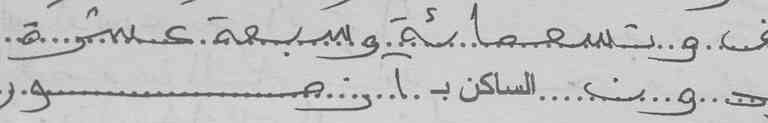 ف و تسعمائة وسبعة عشرة
ون الساكن بـ آ